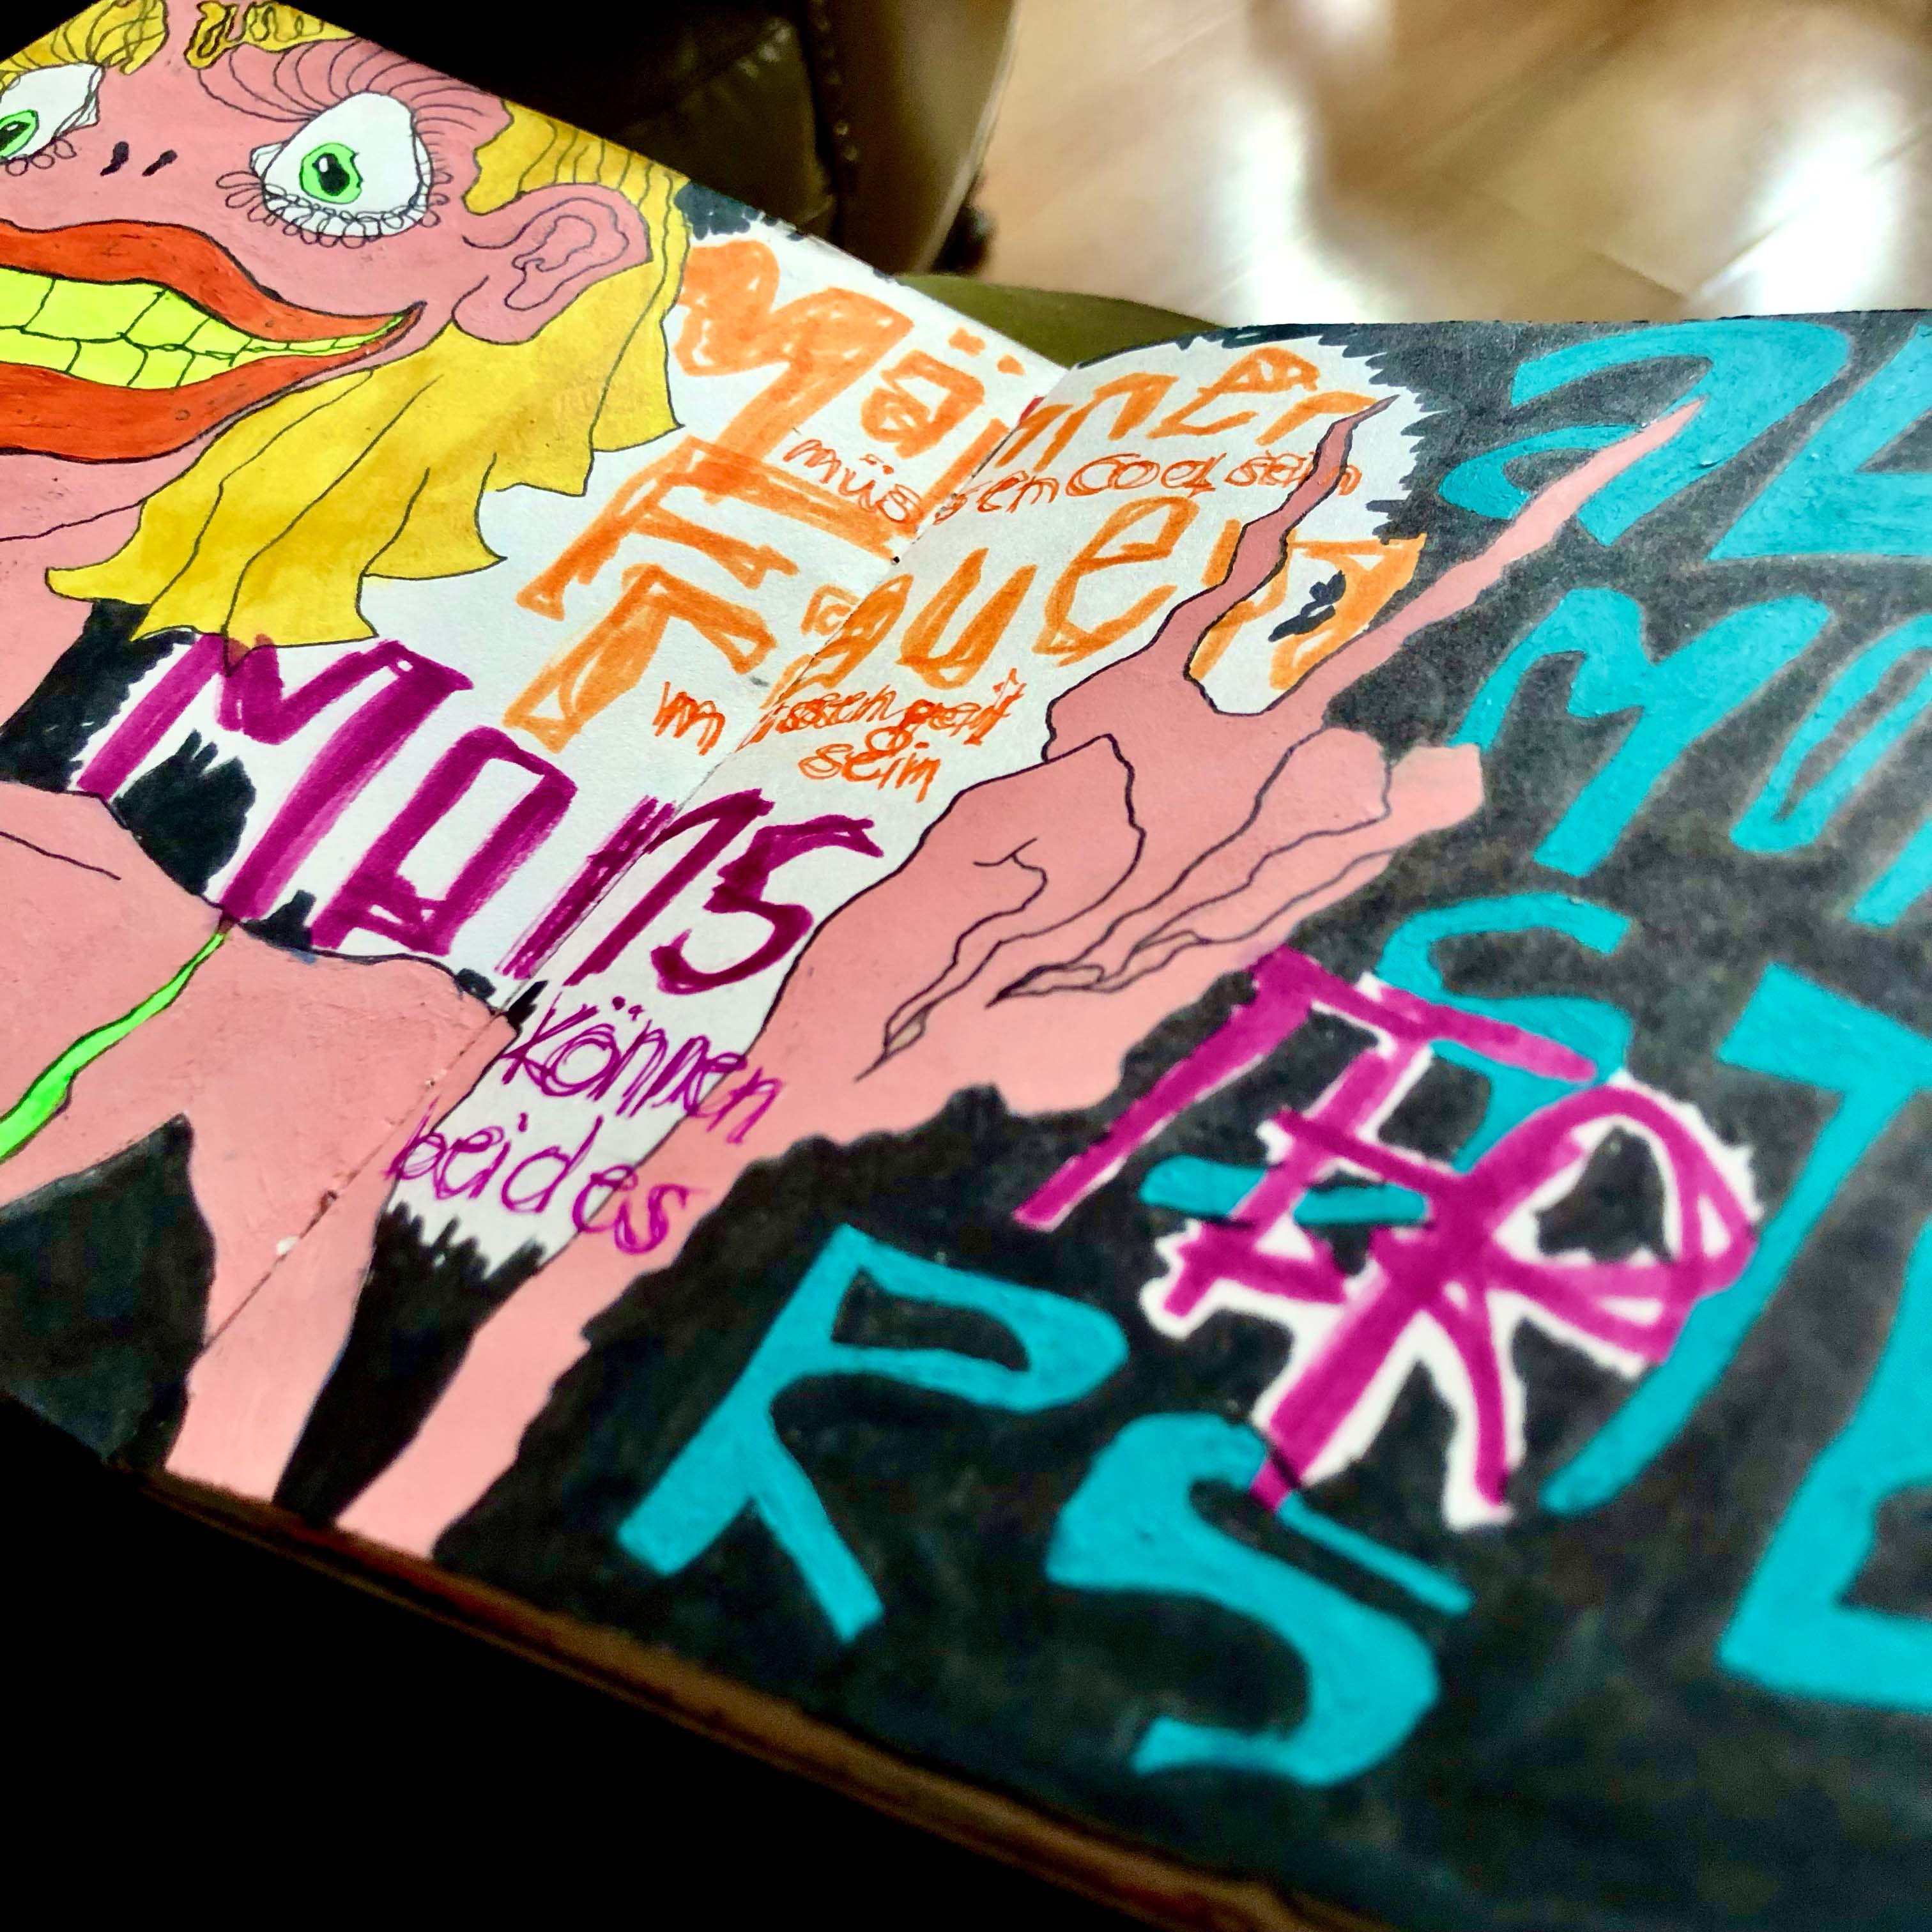 Männer
müssen cool sein
Frauen
müssen geil
sein
Mons
TER
können
beides
MO
STE
RS